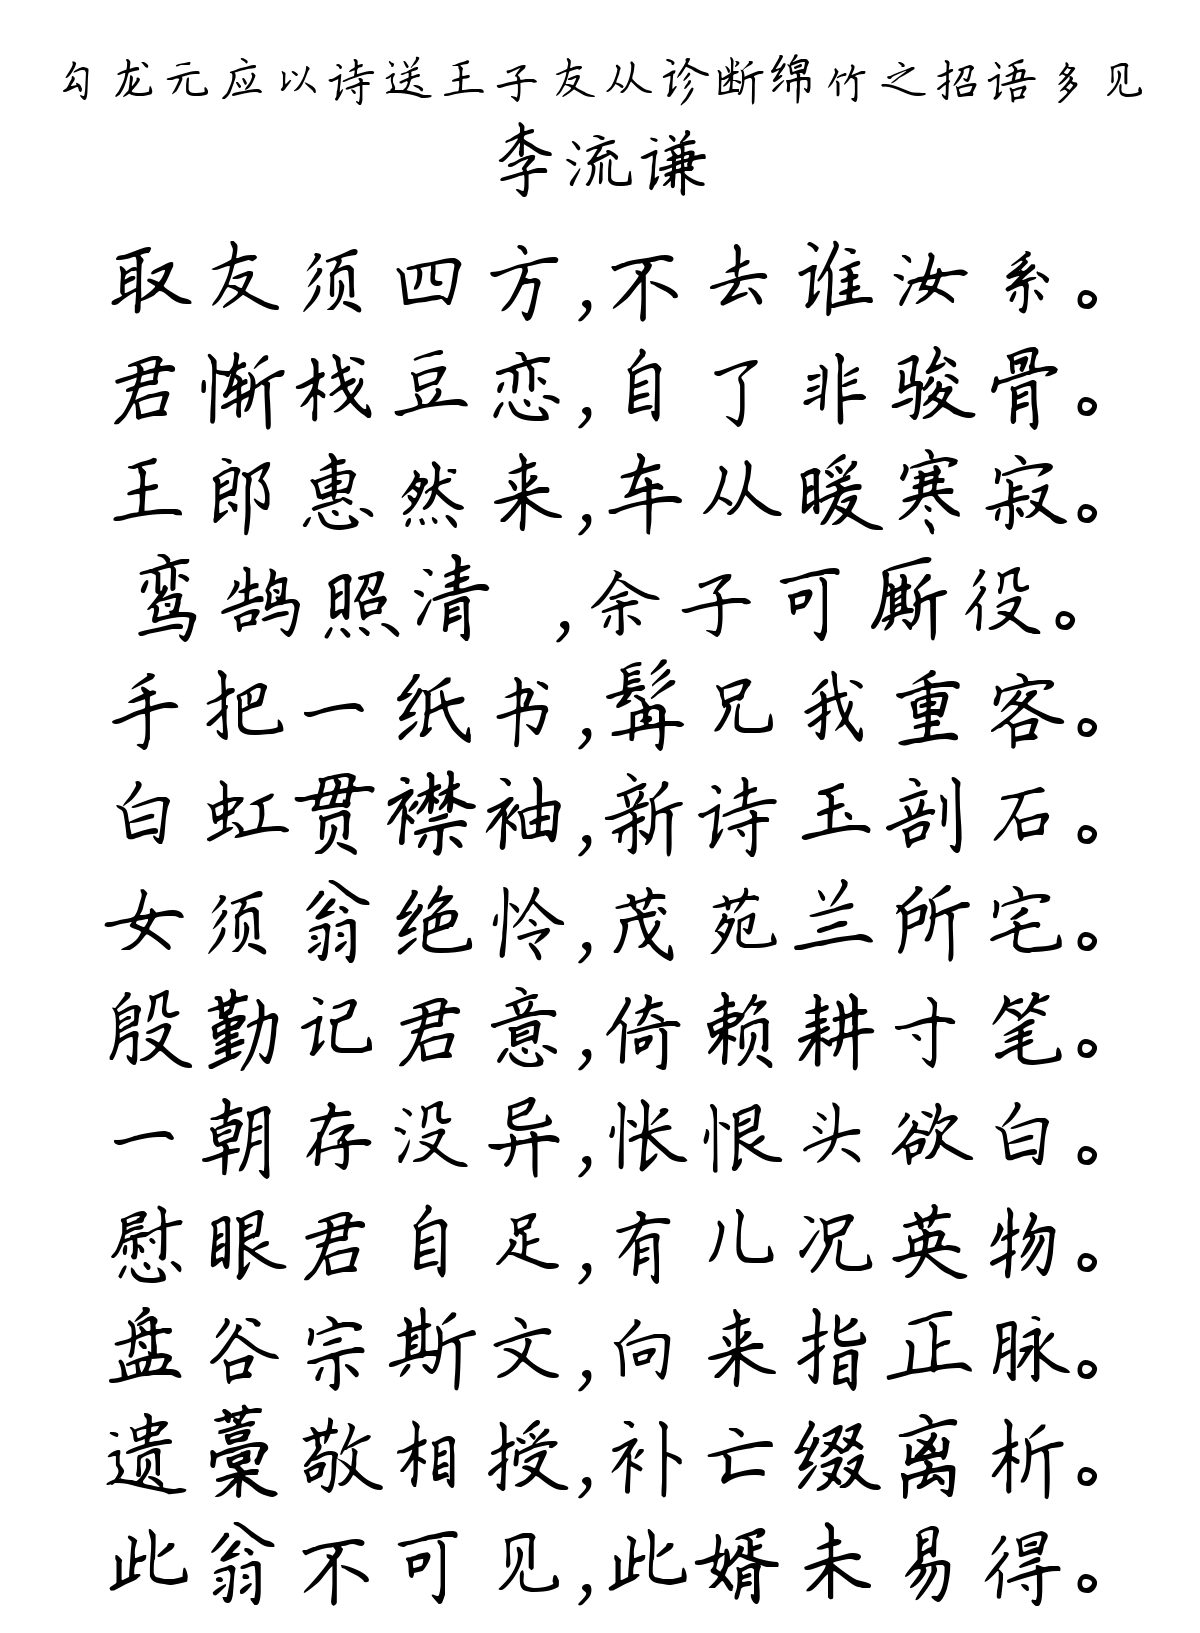 勾龙元应以诗送王子友从诊断绵竹之招语多见
李流谦
取友须四方,不去谁汝系。
君惭栈豆恋,自了非骏骨。
王郎惠然来,车从暖寒寂。
鸾鹄照清 ,余子可厮役。
手把一纸书,髯兄我重客。
白虹贯襟袖,新诗玉剖石。
女须翁绝怜,茂苑兰所宅。
殷勤记君意,倚赖耕寸笔。
一朝存没异,怅恨头欲白。
慰眼君自足,有儿况英物。
盘谷宗斯文,向来指正脉。
遗藁敬相授,补亡缀离析。
此翁不可见,此婿未易得。